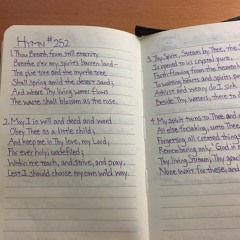 Hymn #252
1. Thou Breath from still eternity
Breathe o'er my spirit's barren land—
The pine tree and the myrtle tree
Shall spring amid the desert sand;
And where Thy living water flows
The waste shall blossom as the rose.
2. May I in will and deed and word
Obey Thee as a little child;
And keep me in Thy love, my Lord,
For ever holy, undefiled;
Within me teach, and strive, and pray,
Lest I should choose my own wild way.
3. Thou Spirit, Stream by Thee, the
Is opened to us crystal pure,
Forth flowing from the heavenly
To waiting hearts and spirits
Athirst and weary do I sink
Beside Thy waters, there to
4. My spirit turns to Thee and
All else forsaking, unto Thee
Forgetting all created things
Remembering only "God in
Thy living Stream, Thy
None want for these, and